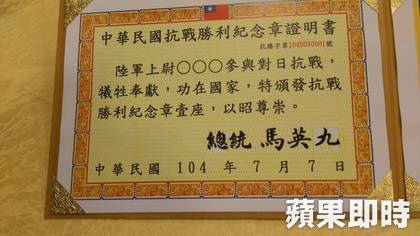 中華民國抗戰勝利紀念章證明書
抗勝字第104000001號
陸軍上尉○○○參與對日抗戰，
犧牲奉獻，功在國家，特頒發抗戰
勝利紀念章壹座，以昭尊崇。
總統 馬英九
中華民國 104 年 7 月 7 日
蘋果即時